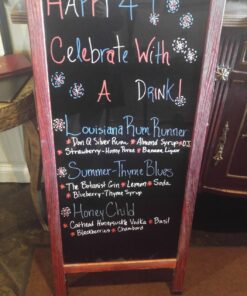 Happy 4th
Celebrate With
A DRINK!
Louisiana Rum Runner
* Don Q Silver Rum * Almond Syrup * OJ
* Strawberry-Honey Puree * Banana Liquor
Summer-Thyme Blues
* The Botanist Gin * Lemon * Soda
* Blueberry-Thyme Syrup
Honey Child
* Cathead Honeysuckle Vodka * Basil
* Blackberries * Chambord